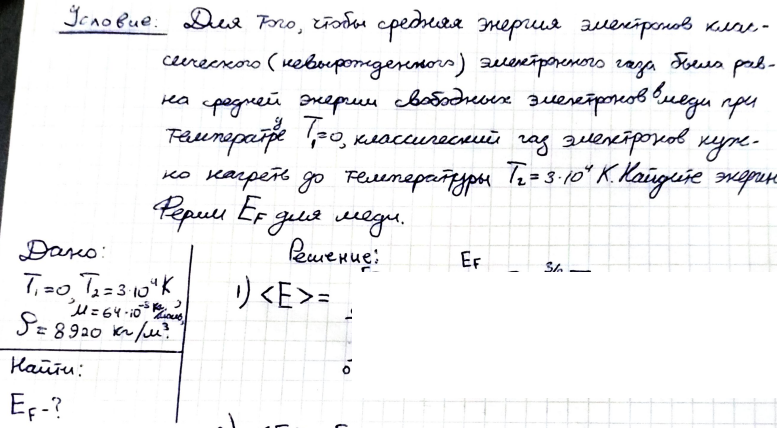 Условие: Для того, чтобы средняя энергия электронов клас-
сического (невырожденного) электронного газа была рав-
на средней энергии свободных электронов в меди при
температуре T₁=0, классический газ электронов нуж-
но нагреть до температуры T₂=3·10⁴ К. Найдите энергию
Ферми E_F для меди.
Дано:
T₁=0, T₂=3·10⁴ К,
μ=64·10⁻³ кг/моль,
ρ=8920 кг/м³.
Найти:
E_F-?
Решение:
E_F
1) <E>=